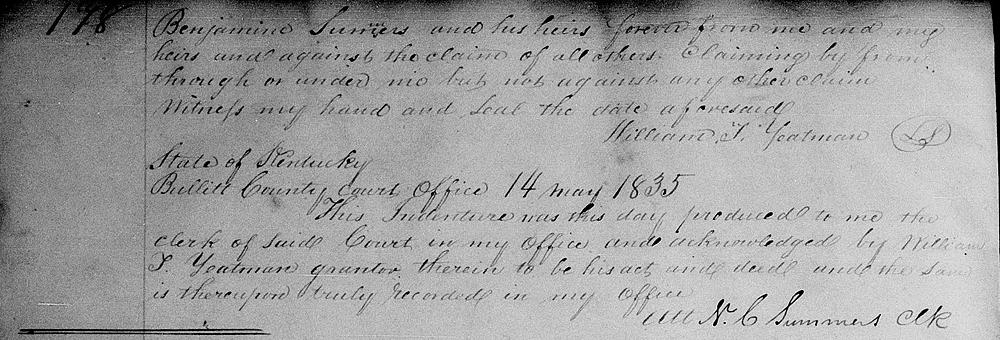 198
Benjamine Summers and his heirs forever from me and my
heirs and against the claim of all others. Claiming by from
through or under me but not against any other claim
Witness my hand and Seal the date aforesaid
William T. Yeatman LS
State of Kentucky
Bullitt County court office 14 may 1835
This Indenture was this day produced to me the
clerk of said Court in my office and acknowledged by William
T. Yeatman grantor therein to be his act and deed and the same
is thereupon truly recorded in my office
Att N. C Summers Clk